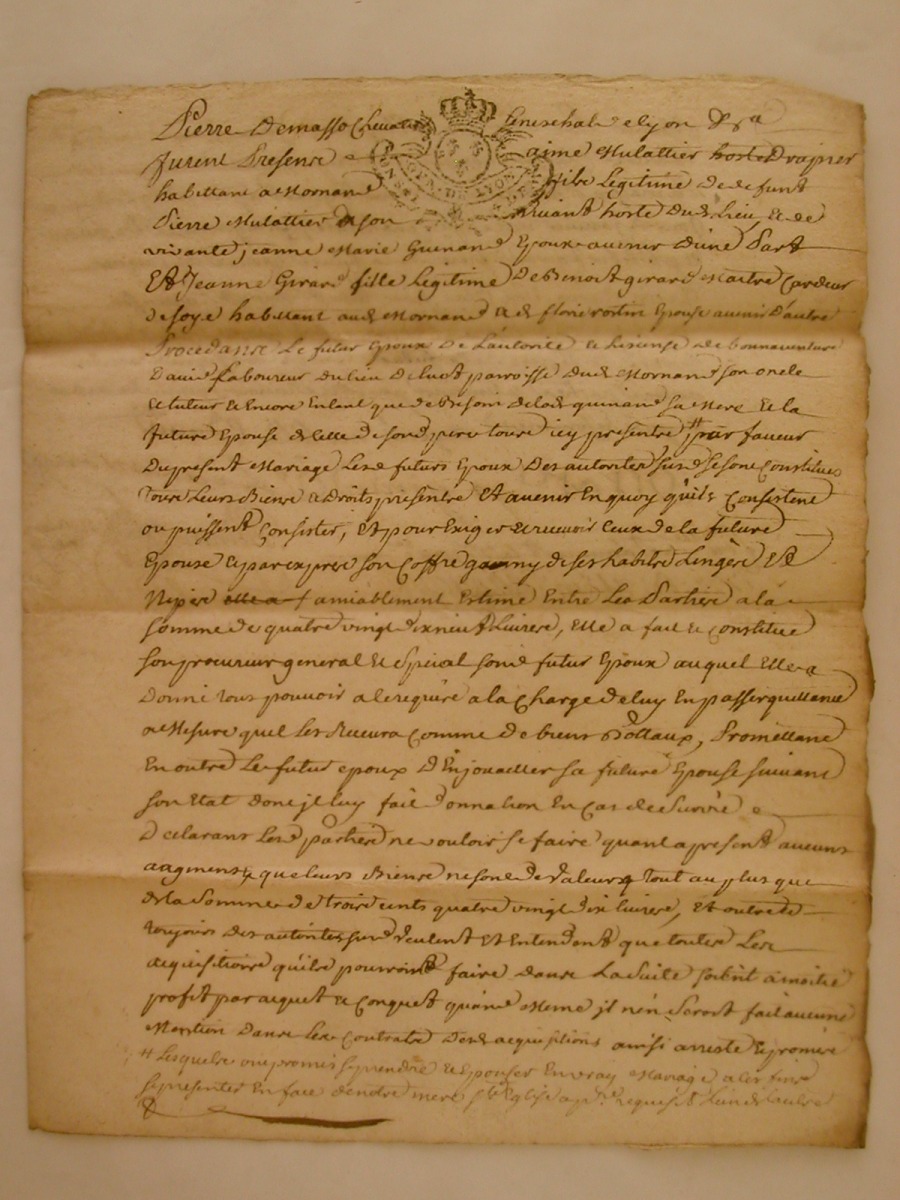 Pierre Demasso Chevalier Seneschal de Lyon &ca
furent Presens aimé Mulattier hoste
habittant a Mornand fils Legitime de defunt
Pierre Mulattier son vivant hoste dud. Lieu, et de
vivante jeanne Marie Guinand Epoux avenir d'une Part
Et Jeanne Girard fille Legitime De Benoit girard Maitre Cardeur
de soye habittant aud. Mornand et de Epouse avenir d'autre
Procedants Le futur Epoux De L'autorité et License de bonnaventure
Laboureur du lieu De paroisse dud. Mornand son oncle
et tuteur et Encore Entant que de Besoin de lad. guinand sa Mere et la
future Epouse de Celle de sond. pere tous icy presents # par faveur
Du present Mariage Lesd. futurs Epoux Des autorités susd. se sont Constitués
Tous Leurs Biens et Droits presents Et avenir En quoy qu'ils Consistent
ou puissent Consister, Et pour Exiger et recevoir Ceux de la future
Epouse et par exprès son Coffre garny de ses habits Linges Et
Nipes amiablement Estimé Entre Les Parties a la
somme de quatre vingt dix neuf Livres, Elle a fait et Constitué
son procureur general et Special sond. futur Epoux auquel Elle a
Donné tous pouvoir a le requis a la Charge de luy En passer quittance
a Mesure quil Les Recevra Comme de biens Dottaux, Promettant
En outre Le futur epoux D'Enjouailler sa future Epouse suivant
son Etat dont jl luy fait Donnation En Cas de Survie
Declarant Lesd. parties ne vouloir se faire quant a present aucuns
augments que leurs Biens ne sont de valeur Tout au plus que
de la Somme de trois cents quatre vingt dix livres, Et outre de
toujours Des autorités susd. Veulent Et Entendent que toutes Les
acquisitions qu'ils pourront faire dans La Suite soient a moitié
profit par acquet et Conquet quand Meme jl n'en Seroit fait aucune
Mention Dans Les Contrats Desd. acquisitions ainsi arresté et promis
# Lesquels ont promis se prendre et Epouser En vray Mariage a ces fins
se presenter En face de notre mere Ste Eglise requis L'un de L'autre